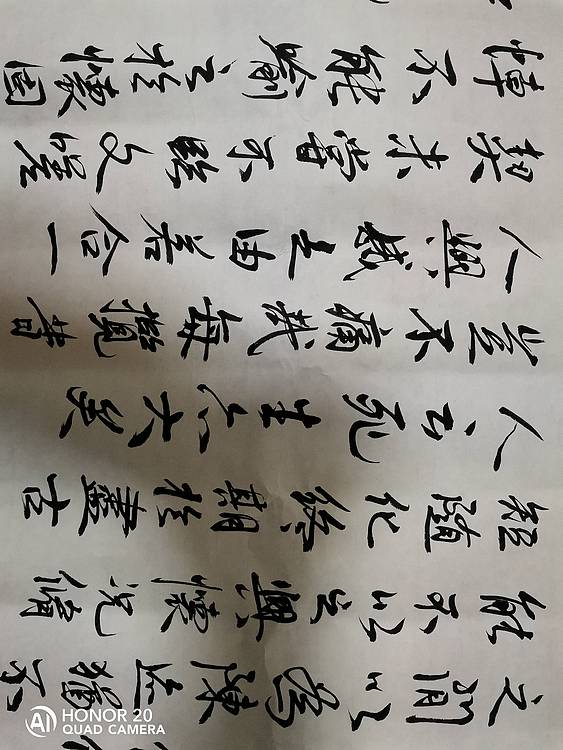 之間以為陳迹猶不
能不以之興懷況脩
短隨化終期於盡古
人云死生亦大矣
豈不痛哉每攬昔
人興感之由若合一
契未嘗不臨文嗟
悼不能喻之於懷固
AI HONOR 20
QUAD CAMERA